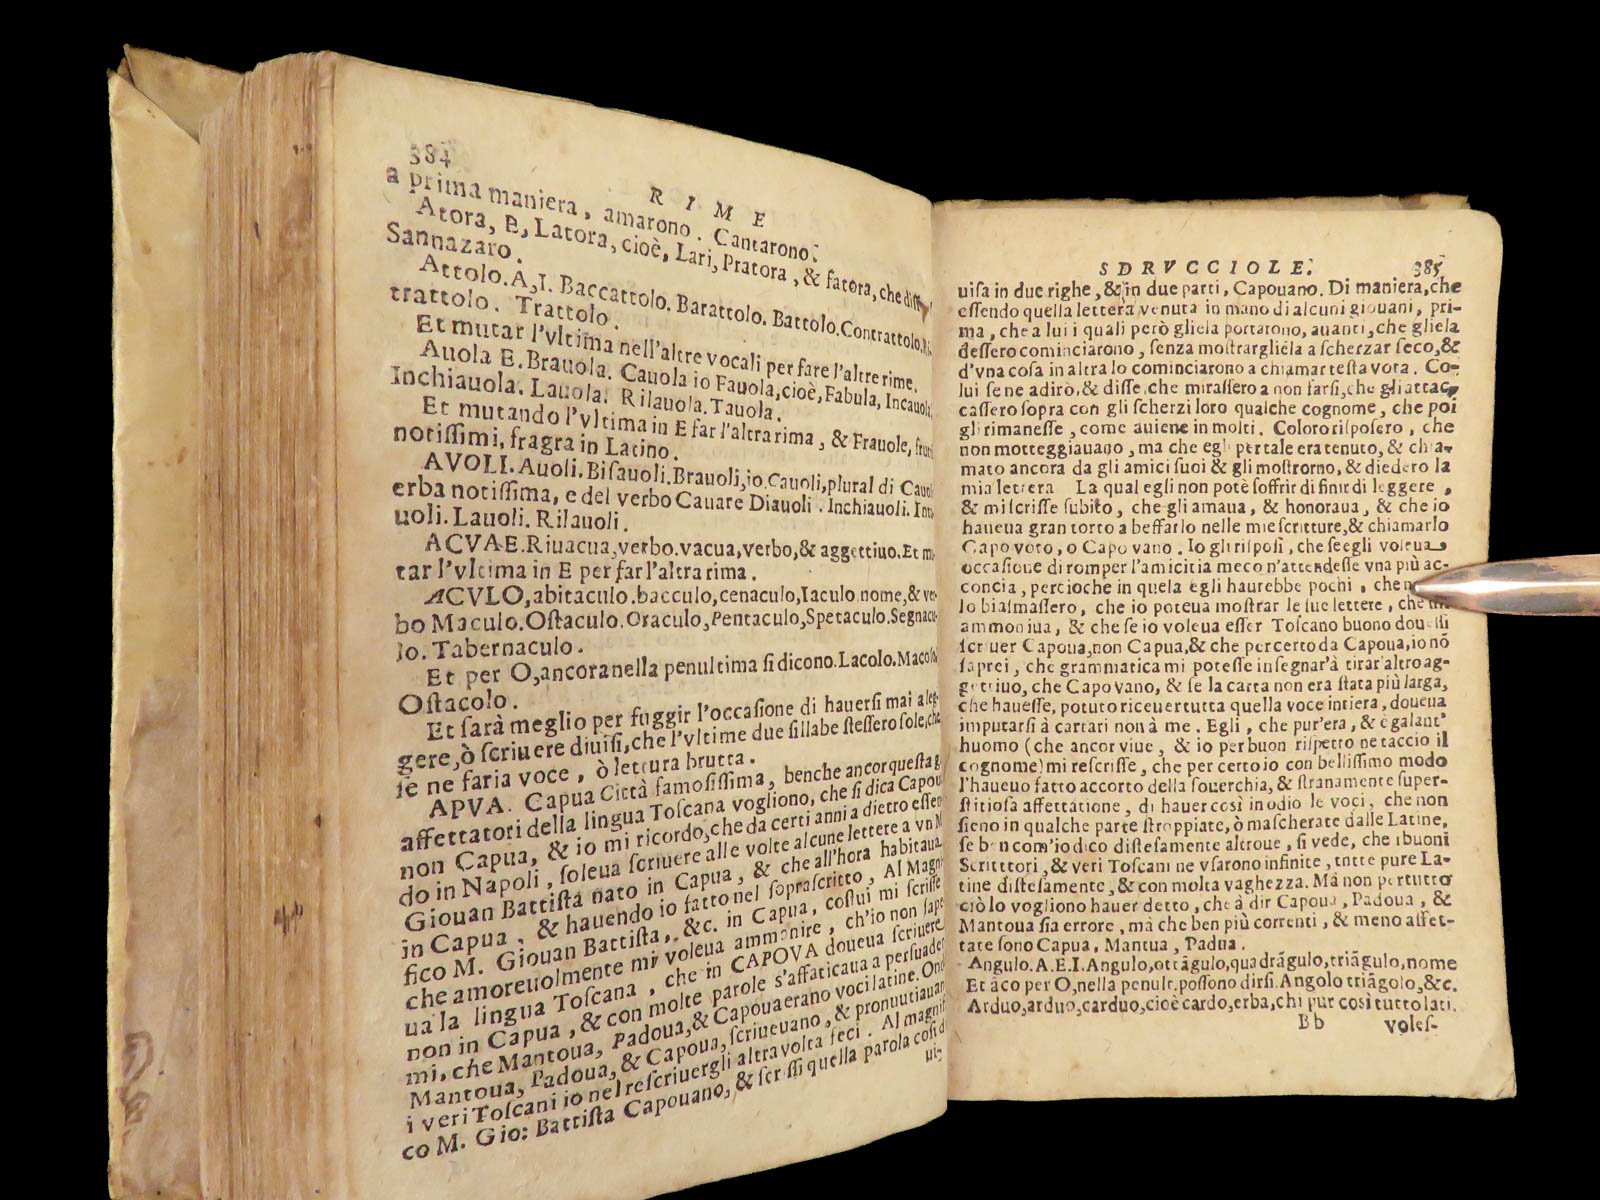 384
RIME
a prima maniera, amarono. Cantarono.
Atora, E, Latora, cioè, Lari, Pratora, & fatora, che diſſ
Sannazaro.
Attolo. A, I. Baccattolo. Barattolo. Battolo. Contrattolo.
trattolo. Trattolo.
Et mutar l'vltima nell'altre vocali per fare l'altre rime.
Auola E. Brauola. Cauola io Fauola, cioè, Fabula, Incauola,
Inchiauola. Lauola. Rilauola. Tauola.
Et mutando l'vltima in E far l'altra rima, & Frauole, frutti
notiſſimi, fragra in Latino.
AVOLI. Auoli. Biſauoli. Brauoli, io. Cauoli, plural di
erba notiſſima, e del verbo Cauare Diauoli. Inchiauoli.
uoli. Lauoli. Rilauoli.
ACVAE. Riuacua, verbo. vacua, verbo, & aggettiuo. Et
tar l'vltima in E per far l'altra rima.
ACVLO, abitaculo. bacculo, cenaculo, Iaculo nome, &
bo Maculo. Oſtaculo. Oraculo, Pentaculo, Spetaculo. Segnacu
lo. Tabernaculo.
Et per O, ancora nella penultima ſi dicono. Lacolo. Macolo
Oſtacolo.
Et ſarà meglio per fuggir l'occaſione di hauerſi mai a leg-
gere, ò ſcriuere diuiſi, che l'vltime due ſillabe ſteſſero ſole, che
ſe ne faria voce, ò lettura brutta.
APVA. Capua Città famoſiſſima, benche ancor queſta
affettatori della lingua Toſcana vogliono, che ſi dica Capou
non Capua, & io mi ricordo, che da certi anni a dietro eſſen
do in Napoli, ſoleua ſcriuere alle volte alcune lettere a vn M
Giouan Battiſta nato in Capua, & che all'hora habitaua
in Capua, & hauendo io fatto nel ſopraſcritto, Al Magni
fico M. Giouan Battiſta, &c. in Capua, coſtui mi ſcriſſe
che amoreuolmente mi voleua ammonire, ch'io non ſape
ua la lingua Toſcana, che in CAPOVA doueua ſcriuere,
non in Capua, & con molte parole s'affaticaua a perſuader
mi, che Mantoua, Padoua, & Capoua erano voci latine. Onde
Mantoua, Padoua, & Capoua, ſcriueuano, & pronuntiauan
i veri Toſcani io nel reſcriuergli altra volta feci. Al magnifi
co M. Gio: Battiſta Capouano, & ſcriſſi quella parola coſi d
uiſ-
SDRVCCIOLE.
385
uiſa in due righe, & in due parti, Capouano. Di maniera, che
eſſendo quella lettera venuta in mano di alcuni giouani, pri-
ma, che a lui i quali però gliela portarono, auanti, che gliela
deſſero cominciarono, ſenza moſtrargliela a ſcherzar ſeco, &
d'vna coſa in altra lo cominciarono a chiamar teſta vota. Co-
lui ſe ne adirò, & diſſe, che miraſſero a non farſi, che gli attac,
caſſero ſopra con gli ſcherzi loro qualche cognome, che poi
gli rimaneſſe, come auiene in molti. Coloro riſpoſero, che
non motteggiauano, ma che egli per tale era tenuto, & chia-
mato ancora da gli amici ſuoi & gli moſtrorno, & diedero la
mia lettera La qual egli non potè ſoffrir di finir di leggere,
& mi ſcriſſe ſubito, che gli amaua, & honoraua, & che io
haueua gran torto a beffarlo nelle mie ſcritture, & chiamarlo
Capo voto, o Capo vano. Io gli riſpoſi, che ſe egli voleua
occaſione di romper l'amicitia meco n'attendeſſe vna più ac-
concia, percioche in quela egli haurebbe pochi, che
lo biaſmaſſero, che io poteua moſtrar le ſue lettere, che
ammoniua, & che ſe io voleua eſſer Toſcano buono doueſſi
ſcriuer Capoua, non Capua, & che per certo da Capoua, io nõ
ſaprei, che grammatica mi poteſſe inſegnar'à tirar'altro ag-
gettiuo, che Capo vano, & ſe la carta non era ſtata più larga,
che haueſſe, potuto riceuer tutta quella voce intiera, doueua
imputarſi à cartari non à me. Egli, che pur'era, & è galant'
huomo (che ancor viue, & io per buon riſpetto ne taccio il
cognome) mi reſcriſſe, che per certo io con belliſſimo modo
l'haueuo fatto accorto della ſouerchia, & ſtranamente ſuper-
ſtitioſa affettatione, di hauer così in odio le voci, che non
ſieno in qualche parte ſtroppiate, ò maſcherate dalle Latine,
ſe ben com'io dico diſteſamente altroue, ſi vede, che i buoni
Scritttori, & veri Toſcani ne vſarono infinite, tutte pure La-
tine diſteſamente, & con molta vaghezza. Mà non per tutto
ciò lo vogliono hauer detto, che à dir Capoua, Padoua, &
Mantoua ſia errore, mà che ben più correnti, & meno affet-
tate ſono Capua, Mantua, Padua.
Angulo. A. E. I. Angulo, ottãgulo, quadrãgulo, triãgulo, nome
Et ãco per O, nella penult. poſſono dirſi. Angolo triãgolo, &c.
Arduo, arduo, carduo, cioè cardo, erba, chi pur così tutto lati.
Bb
voleſ-